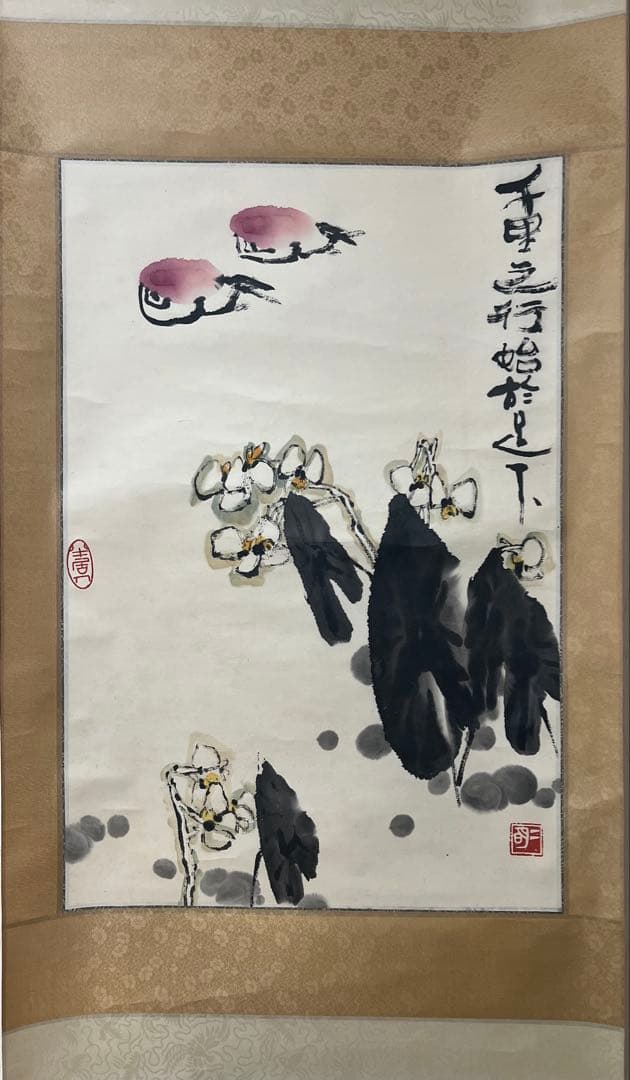 千里之行始於足下